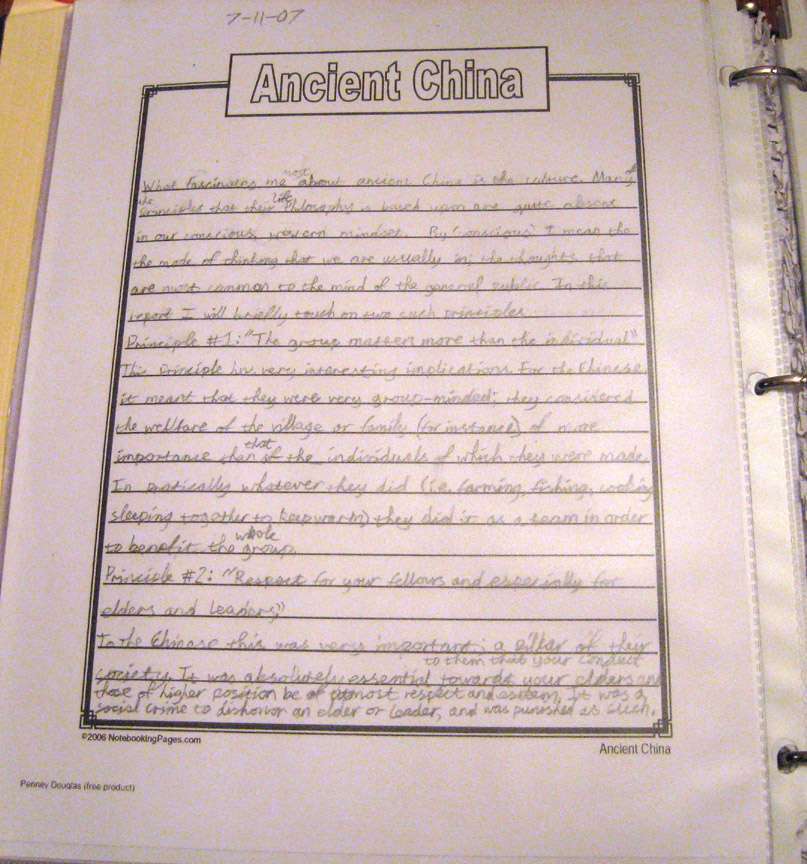 7-11-07
Ancient China
What fascinates me most about ancient China is the culture. Many of
the principles that their life philosophy is based upon are quite absent
in our conscious, western mindset. By (conscious) I mean the
the mode of thinking that we are usually in; the thoughts that
are most common to the mind of the general public. In this
report I will briefly touch on two such principles.
Principle #1: "The group matters more than the individual"
This principle has very interesting implications. For the Chinese
it meant that they were very group-minded; they considered
the welfare of the village or family (for instance) of more
importance than that of the individuals of which they were made.
In pratically whatever they did (i.e. farming, fishing, cooking
sleeping together to keep warm) they did it as a team in order
to benefit the whole group.
Principle #2: "Respect for your fellows and especially for
elders and leaders;"
To the Chinese this was very important; a pillar of their
society. It was absolutely essential to them that your conduct towards your elders and
those of higher position be of utmost respect and esteem. It was a
social crime to dishonor an elder or leader, and was punished as such.
©2006 NotebookingPages.com
Ancient China
Penney Douglas (free product)